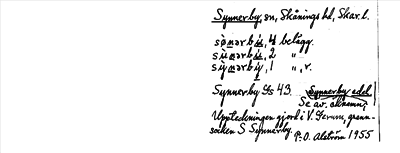 Synnerby, sn, Skånings hd, Skar. l.
sønərbү, 4 belägg.
sünərbү, 2 "
sүnərbү, 1 ", r.
Synnerby Js 43. Synnerby adel
Se av. oknamn,
Uppteckningen gjord i V. Gerum, grann-
socken S Synnerby. P. O. Alström 1955